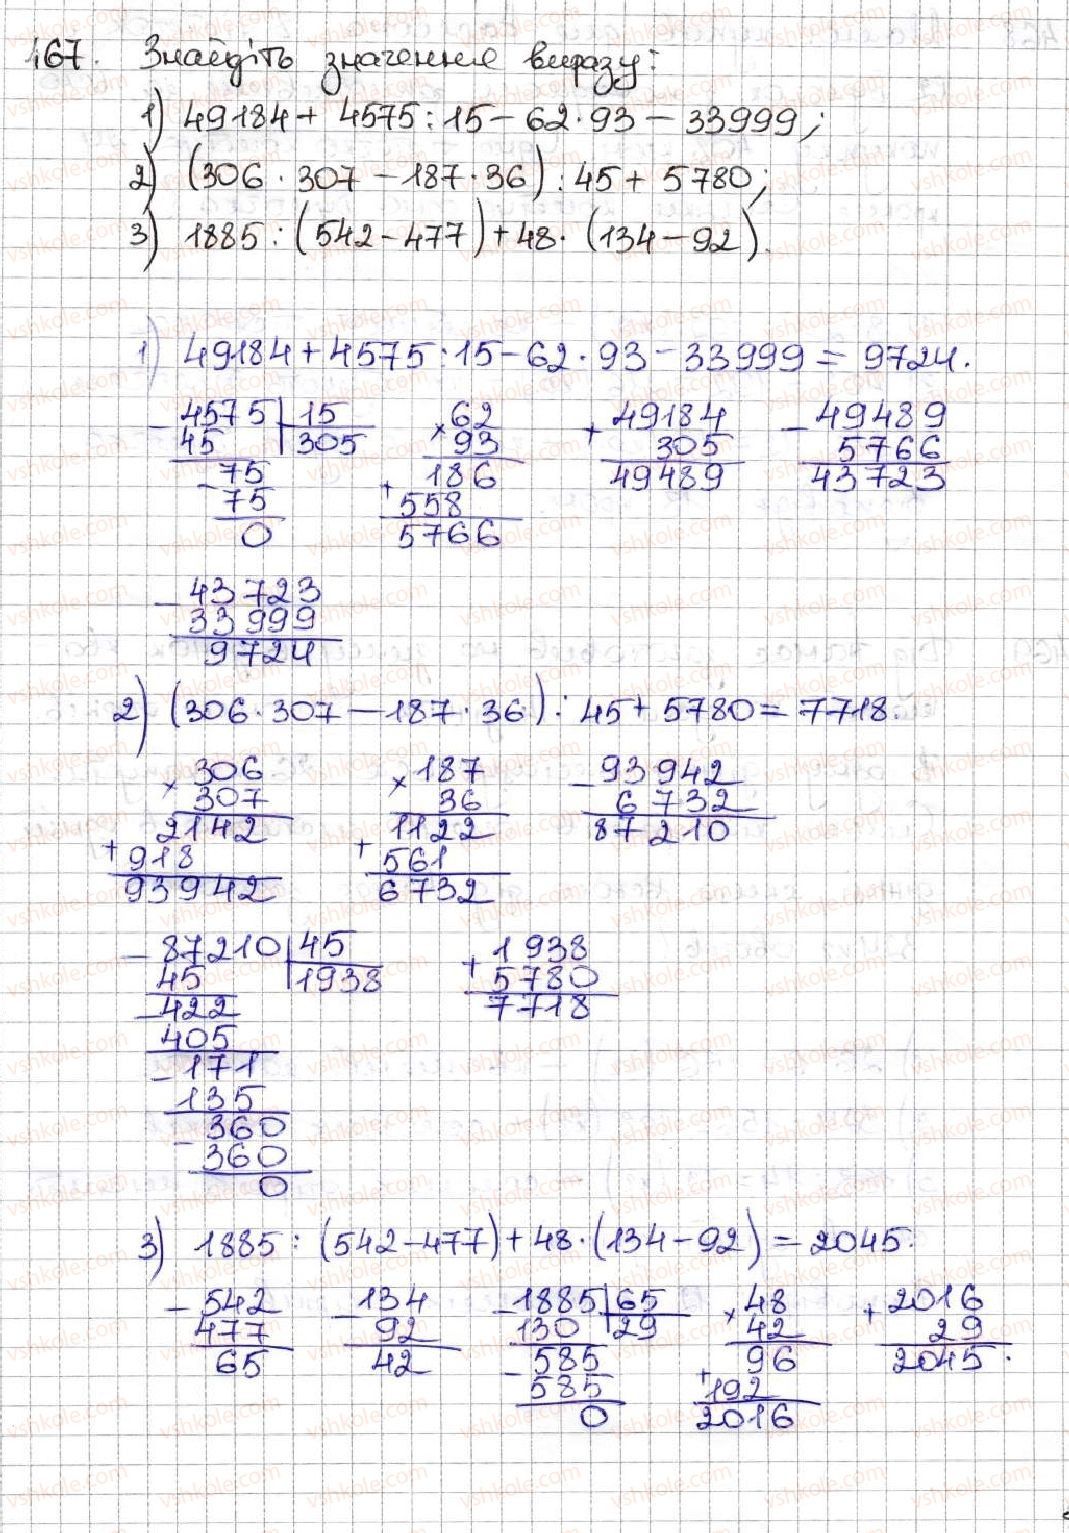 167. Знайдіть значення виразу:
1) 49184 + 4575 : 15 - 62 · 93 - 33999;
2) (306 · 307 - 187 · 36) : 45 + 5780;
3) 1885 : (542 - 477) + 48 · (134 - 92).
1) 49184 + 4575 : 15 - 62 · 93 - 33999 = 9724.
- 4575 | 15   × 62   + 49184   - 49489
45   305   93   305   5766
- 75   186   49489   43723
75   + 558
0   5766
- 43723
33999
9724
2) (306 · 307 - 187 · 36) : 45 + 5780 = 7718.
× 306   × 187   - 93942
307   36   6732
2142   1122   87210
+ 918   + 561
93942   6732
- 87210 | 45   + 1938
45   1938   5780
- 422   7718
405
- 171
135
- 360
360
0
3) 1885 : (542 - 477) + 48 · (134 - 92) = 2045.
- 542   - 134   - 1885 | 65   × 48   + 2016
477   92   130   29   42   29
65   42   - 585   96   2045.
585   + 192
0   2016
vshkole.com